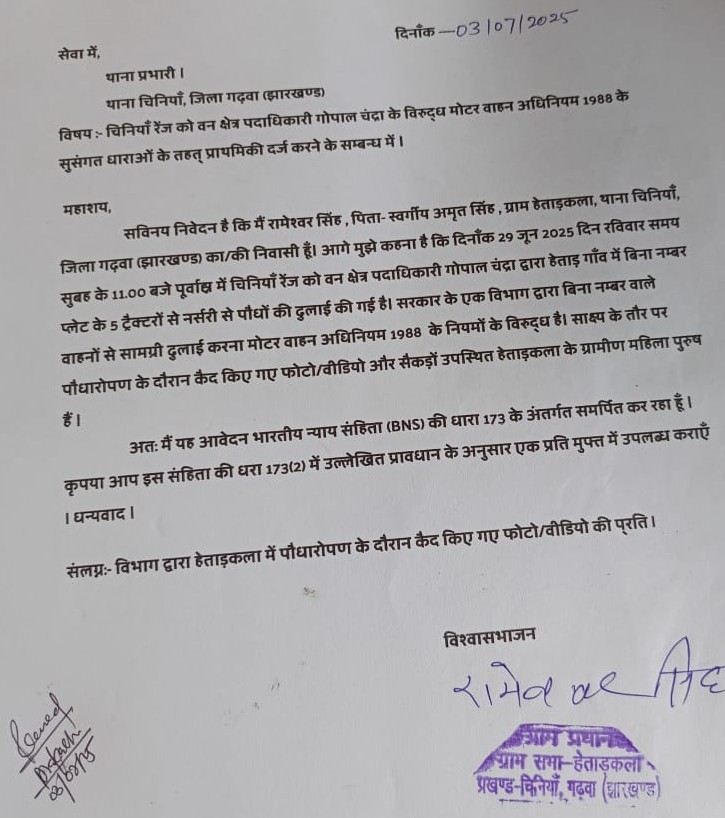 दिनाँक —03/07/2025
सेवा में,
थाना प्रभारी ।
थाना चिनियाँ, जिला गढ़वा (झारखण्ड)
विषय :- चिनियाँ रेंज को वन क्षेत्र पदाधिकारी गोपाल चंद्रा के विरुद्ध मोटर वाहन अधिनियम 1988 के
सुसंगत धाराओं के तहत् प्राथमिकी दर्ज करने के सम्बन्ध में ।
महाशय,
सविनय निवेदन है कि मैं रामेश्वर सिंह , पिता- स्वर्गीय अमृत सिंह , ग्राम हेताड़कला, थाना चिनियाँ,
जिला गढ़वा (झारखण्ड) का/की निवासी हूँ। आगे मुझे कहना है कि दिनाँक 29 जून 2025 दिन रविवार समय
सुबह के 11.00 बजे पूर्वाह्न में चिनियाँ रेंज को वन क्षेत्र पदाधिकारी गोपाल चंद्रा द्वारा हेताड़ गाँव में बिना नम्बर
प्लेट के 5 ट्रैक्टरों से नर्सरी से पौधों की ढुलाई की गई है। सरकार के एक विभाग द्वारा बिना नम्बर वाले
वाहनों से सामग्री ढुलाई करना मोटर वाहन अधिनियम 1988 के नियमों के विरुद्ध है। साक्ष्य के तौर पर
पौधारोपण के दौरान कैद किए गए फोटो/वीडियो और सैकड़ों उपस्थित हेताड़कला के ग्रामीण महिला पुरुष
हैं ।
अतः मैं यह आवेदन भारतीय न्याय संहिता (BNS) की धारा 173 के अंतर्गत समर्पित कर रहा हूँ ।
कृपया आप इस संहिता की धरा 173(2) में उल्लेखित प्रावधान के अनुसार एक प्रति मुफ्त में उपलब्ध कराएँ
। धन्यवाद ।
संलग्नः- विभाग द्वारा हेताड़कला में पौधारोपण के दौरान कैद किए गए फोटो/वीडियो की प्रति ।
विश्वासभाजन
ग्राम प्रधान
ग्राम सभा-हेताड़कला
प्रखण्ड-चिनियाँ, गढ़वा (झारखण्ड)